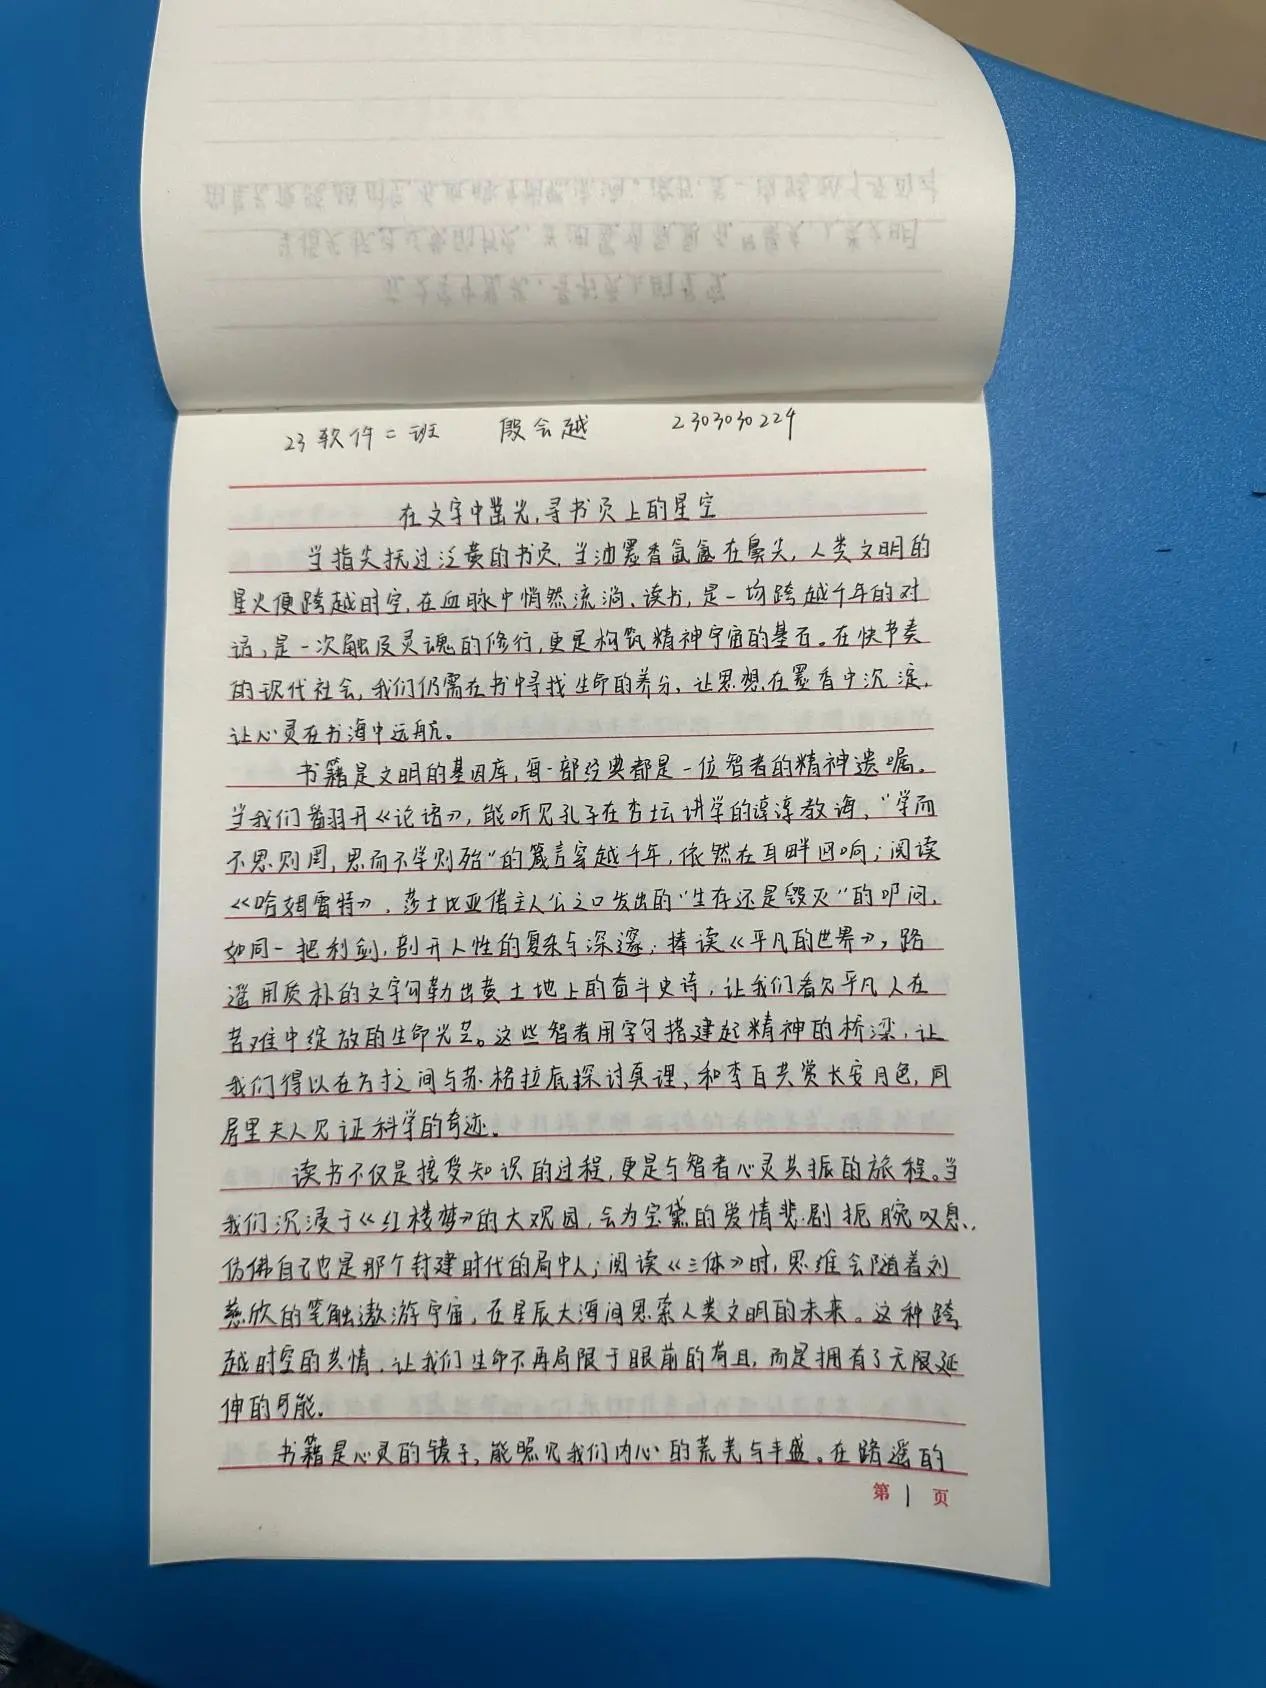 23软件二班 殷会越 2303030224
在文字中凿光,寻书页上的星空
当指尖抚过泛黄的书页,当油墨香氤氲在鼻尖,人类文明的
星火便跨越时空,在血脉中悄然流淌、读书,是一场跨越千年的对
话,是一次触及灵魂的修行,更是构筑精神宇宙的基石。在快节奏
的现代社会,我们仍需在书中寻找生命的养分,让思想在墨香中沉淀,
让心灵在书海中远航。
书籍是文明的基因库,每一部经典都是一位智者的精神遗嘱。
当我们翻开《论语》,能听见孔子在杏坛讲学的谆谆教诲,“学而
不思则罔,思而不学则殆”的箴言穿越千年,依然在耳畔回响;阅读
《哈姆雷特》,莎士比亚借主人公之口发出的“生存还是毁灭”的叩问,
如同一把利剑,剖开人性的复杂与深邃;捧读《平凡的世界》,路
遥用质朴的文字勾勒出黄土地上的奋斗史诗,让我们看见平凡人在
苦难中绽放的生命光芒。这些智者用字句搭建起精神的桥梁,让
我们得以在方寸之间与苏格拉底探讨真理,和李白共赏长安月色,同
居里夫人见证科学的奇迹。
读书不仅是接受知识的过程,更是与智者心灵共振的旅程。当
我们沉浸于《红楼梦》的大观园,会为宝黛的爱情悲剧扼腕叹息,
仿佛自己也是那个封建时代的局中人;阅读《三体》时,思维会随着刘
慈欣的笔触遨游宇宙,在星辰大海间思索人类文明的未来。这种跨
越时空的共情,让我们生命不再局限于眼前的苟且,而是拥有了无限延
伸的可能。
书籍是心灵的镜子,能照见我们内心的荒芜与丰盛。在路遥的
第1页